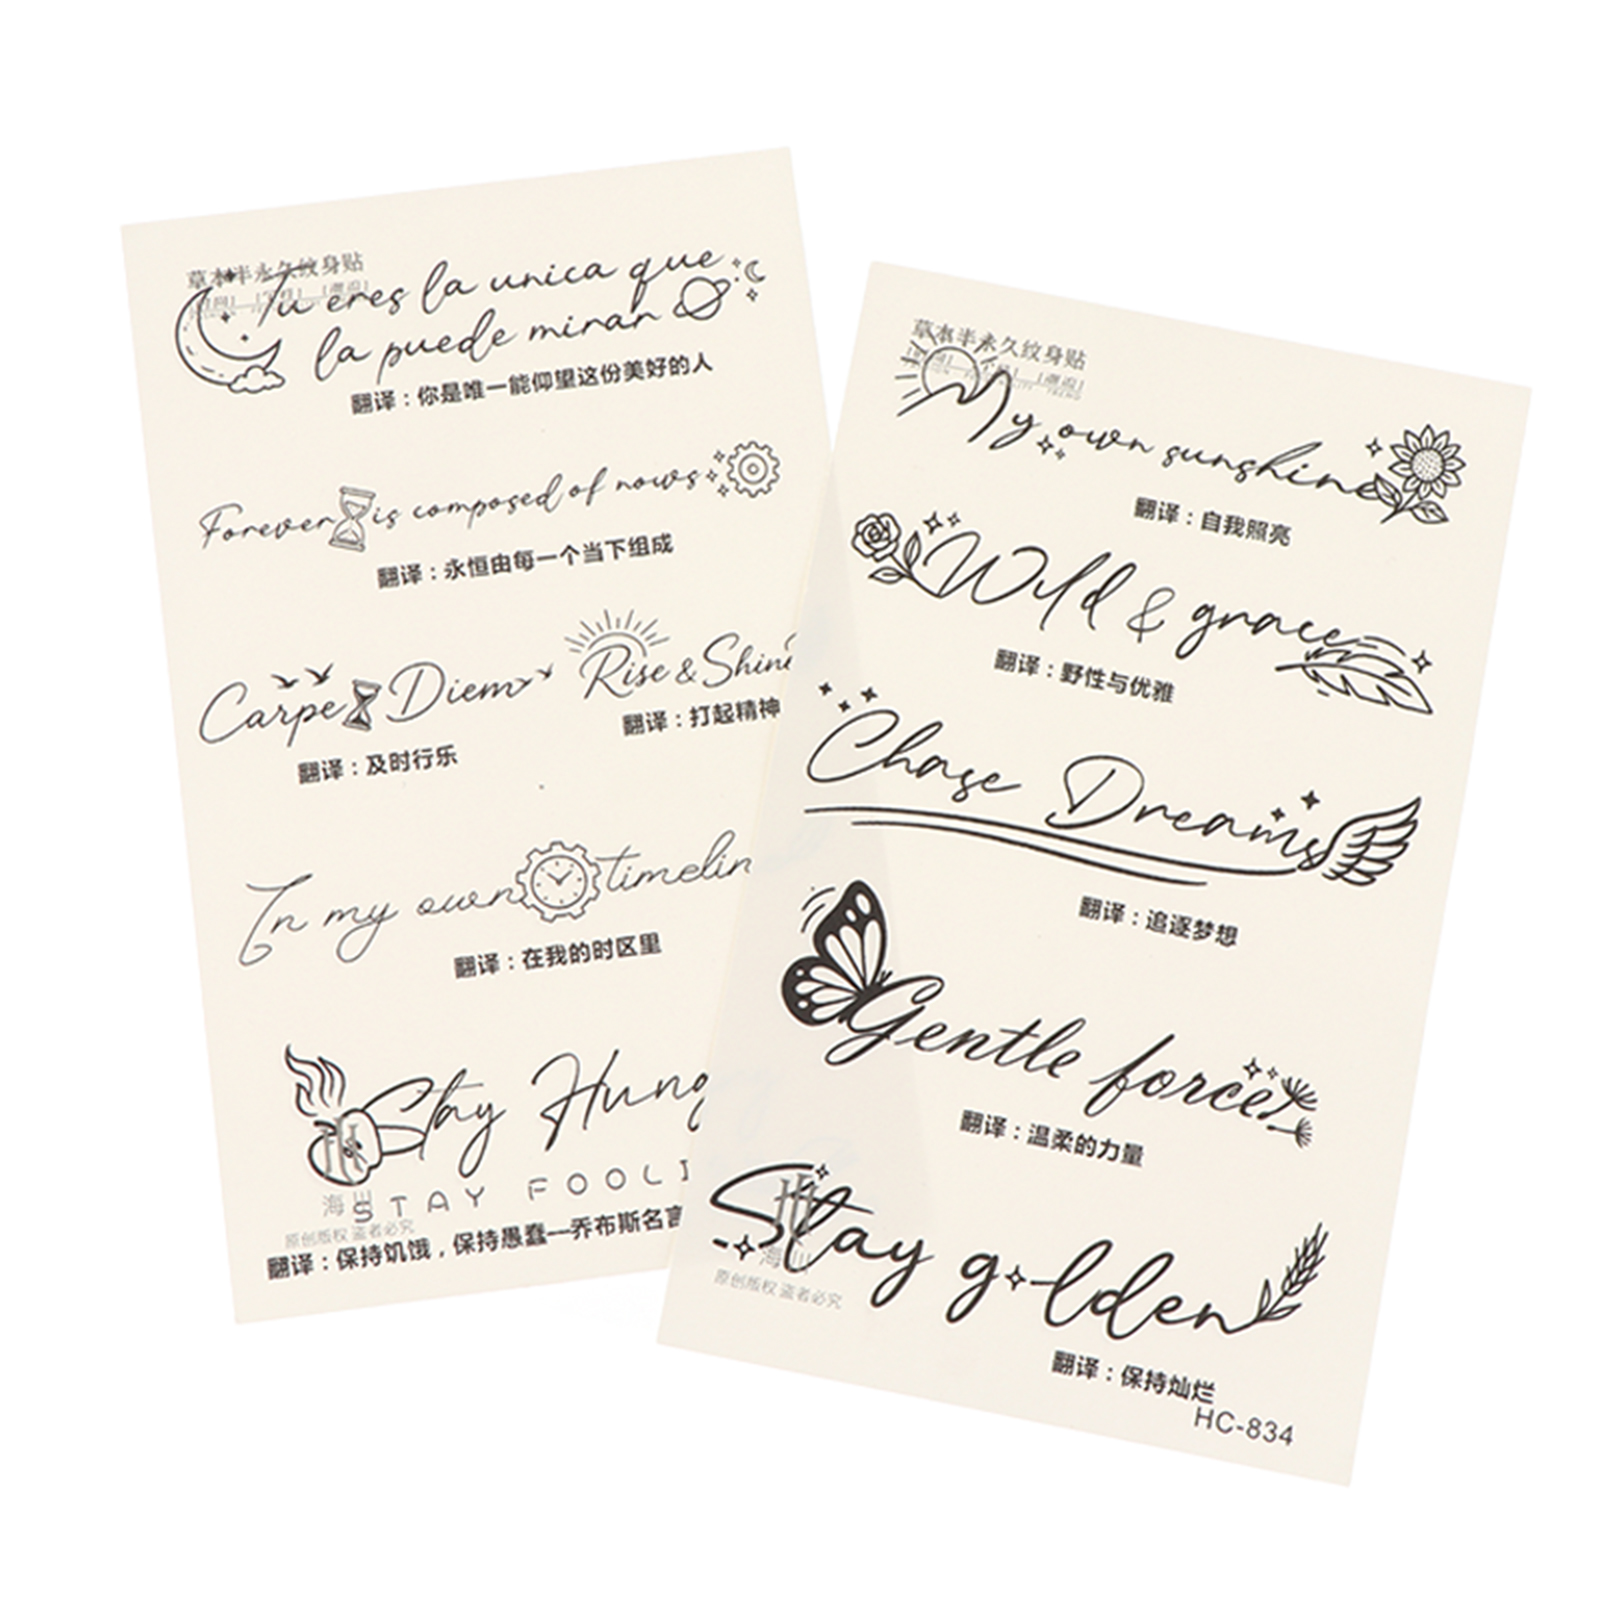 草本半永久纹身贴
Tu eres la unica que
la puede mirar
翻译：你是唯一能仰望这份美好的人
Forever is composed of nows
翻译：永恒由每一个当下组成
Carpe Diem
翻译：及时行乐
Rise & Shine
翻译：打起精神
In my own timelin
翻译：在我的时区里
Stay Hung
STAY FOOLI
海山
原创版权 盗者必究
翻译：保持饥饿，保持愚蠢—乔布斯名言
草本半永久纹身贴
My own sunshine
翻译：自我照亮
Wild & grace
翻译：野性与优雅
Chase Dreams
翻译：追逐梦想
Gentle force
翻译：温柔的力量
Stay golden
海山
原创版权 盗者必究
翻译：保持灿烂
HC-834